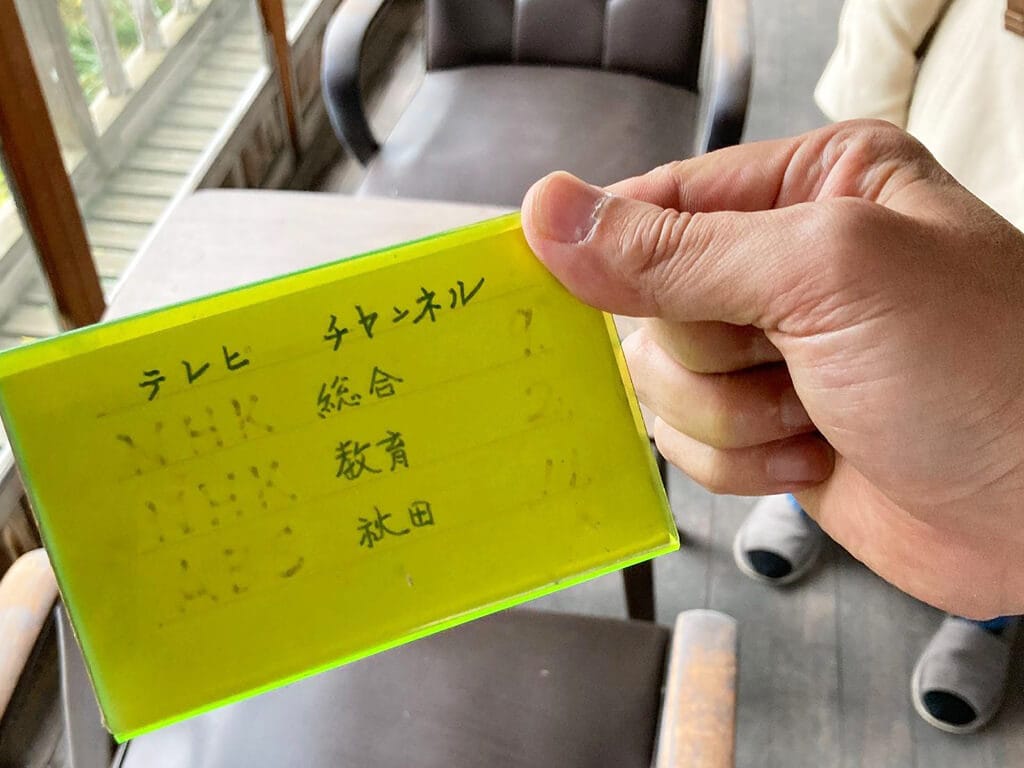 テレビ チャンネル
NHK 総合 9
NHK 教育 2
秋田 11